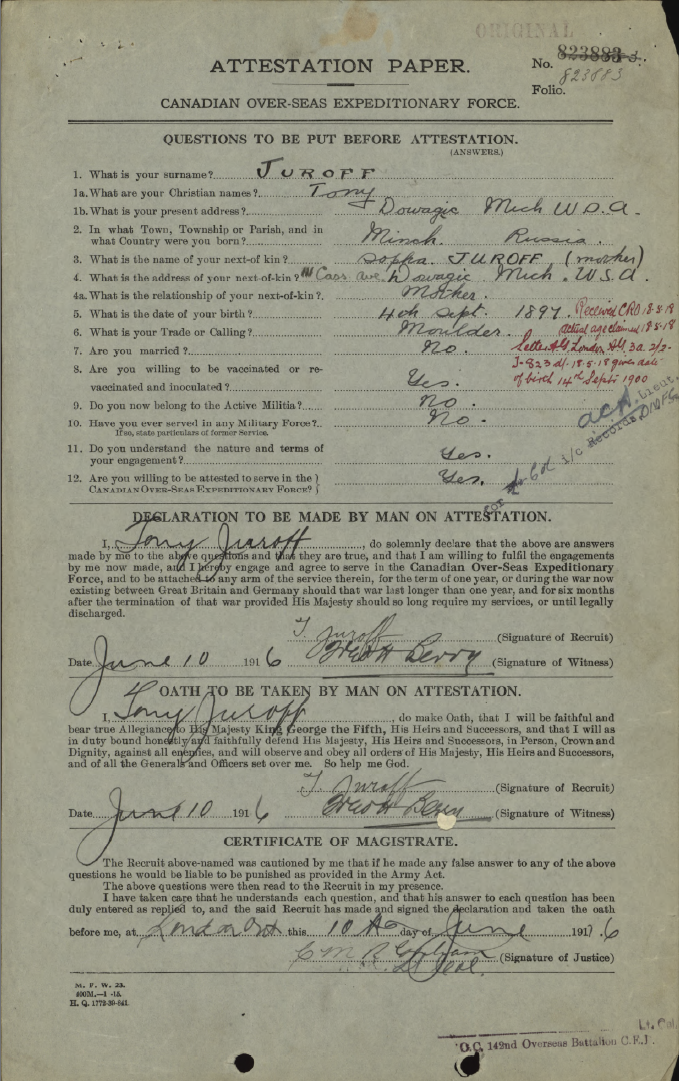 ORIGINAL
ATTESTATION PAPER.
No. 823883
823883
Folio.
CANADIAN OVER-SEAS EXPEDITIONARY FORCE.
QUESTIONS TO BE PUT BEFORE ATTESTATION.
(ANSWERS.)
1. What is your surname? JUROFF
1a. What are your Christian names? Tony
1b. What is your present address? Dowagic Mich U.S.A.
2. In what Town, Township or Parish, and in
what Country were you born? Minsk Russia.
3. What is the name of your next-of kin? Sopha JUROFF (mother)
4. What is the address of your next-of-kin? Cass Ave, Dowagic Mich. U.S.A.
4a. What is the relationship of your next-of-kin? Mother.
5. What is the date of your birth? 4th Sept 1897. Received CRO 18-8-18
6. What is your Trade or Calling? Moulder actual age claimed 18-5-18
7. Are you married? No. Letter London 3a
J-823 d/- 18-5-18 gives date
of birth 14th Sept. 1900
8. Are you willing to be vaccinated or re-
vaccinated and inoculated? Yes.
9. Do you now belong to the Active Militia? No.
10. Have you ever served in any Military Force? No.
If so, state particulars of former Service.
Lieut.
for i/c Records
11. Do you understand the nature and terms of
your engagement? Yes.
12. Are you willing to be attested to serve in the
CANADIAN OVER-SEAS EXPEDITIONARY FORCE? Yes.
DECLARATION TO BE MADE BY MAN ON ATTESTATION.
I, Tony Juroff, do solemnly declare that the above are answers
made by me to the above questions and that they are true, and that I am willing to fulfil the engagements
by me now made, and I hereby engage and agree to serve in the Canadian Over-Seas Expeditionary
Force, and to be attached to any arm of the service therein, for the term of one year, or during the war now
existing between Great Britain and Germany should that war last longer than one year, and for six months
after the termination of that war provided His Majesty should so long require my services, or until legally
discharged.
T. Juroff (Signature of Recruit)
Date June 10 1916 Berry (Signature of Witness)
OATH TO BE TAKEN BY MAN ON ATTESTATION.
I, Tony Juroff, do make Oath, that I will be faithful and
bear true Allegiance to His Majesty King George the Fifth, His Heirs and Successors, and that I will as
in duty bound honestly and faithfully defend His Majesty, His Heirs and Successors, in Person, Crown and
Dignity, against all enemies, and will observe and obey all orders of His Majesty, His Heirs and Successors,
and of all the Generals and Officers set over me. So help me God.
T. Juroff (Signature of Recruit)
Date June 10 1916 Berry (Signature of Witness)
CERTIFICATE OF MAGISTRATE.
The Recruit above-named was cautioned by me that if he made any false answer to any of the above
questions he would be liable to be punished as provided in the Army Act.
The above questions were then read to the Recruit in my presence.
I have taken care that he understands each question, and that his answer to each question has been
duly entered as replied to, and the said Recruit has made and signed the declaration and taken the oath
before me, at London Ont this 10th day of June 191 6
C M R Graham (Signature of Justice)
Lt. Col.
M. F. W. 23.
H. Q. 1772-39-841.
Lt. Col.
O.C. 142nd Overseas Battalion C.E.F.